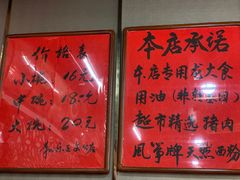 价格表
小碗：16元
中碗：18元
大碗：20元
本店承诺
本店专用龙大食
用油（非转基因）
超市精选猪肉
风筝牌天然西粉